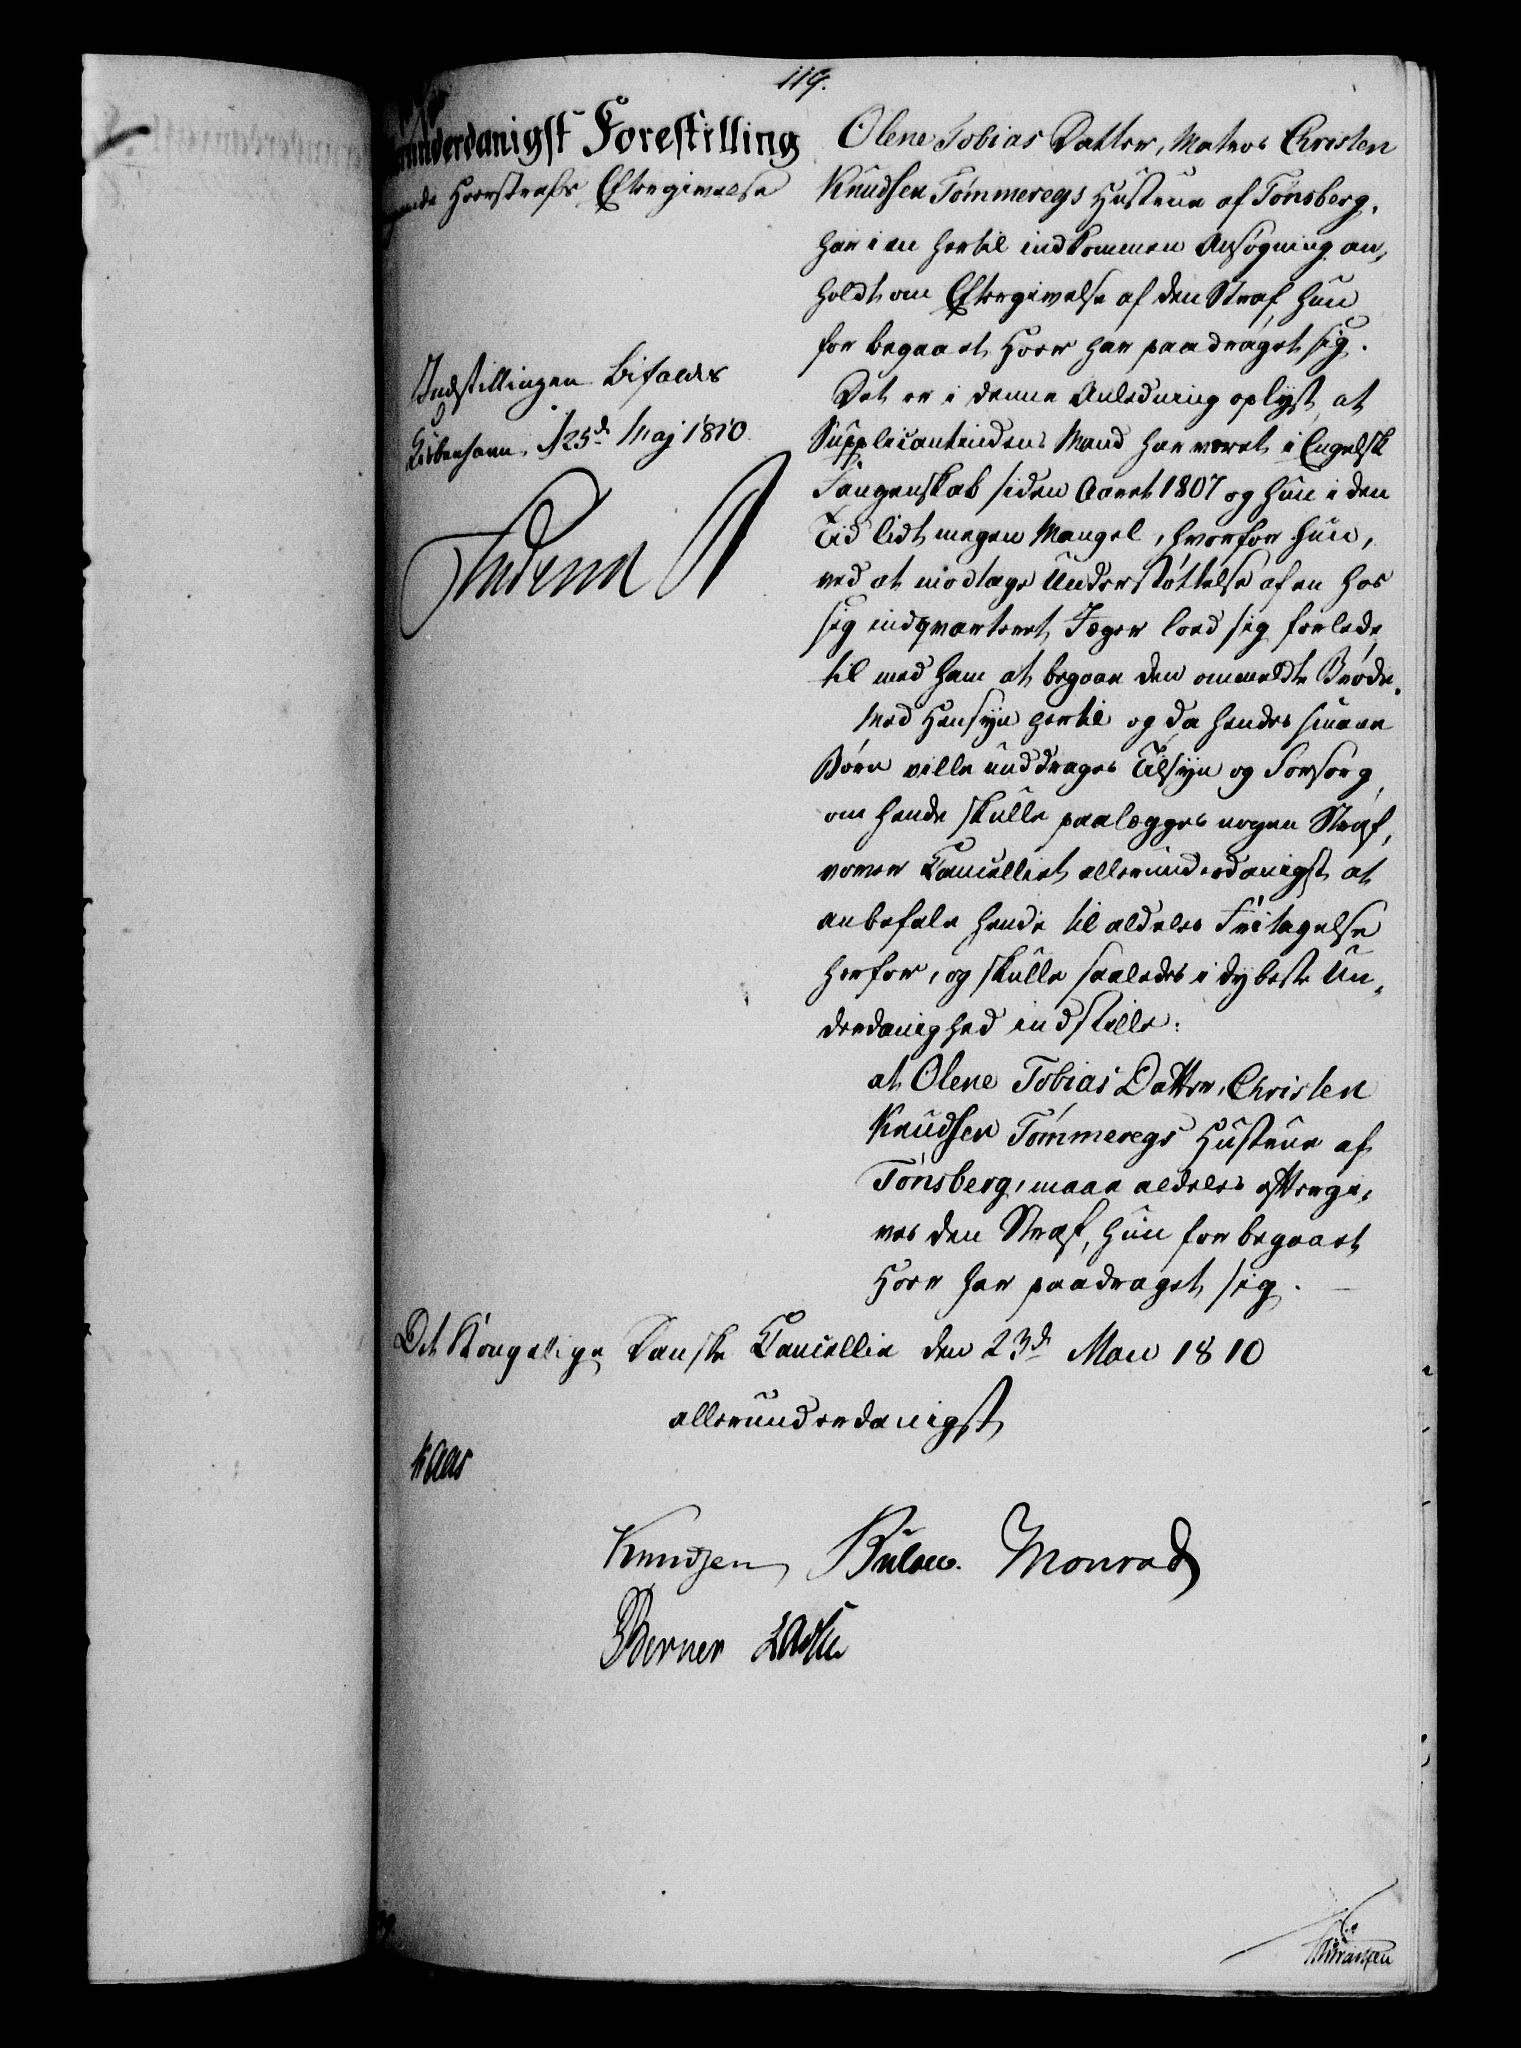 119.
Allerunderdanigst Forestilling
angaaende Hoerstrafs Eftergivelse
Indstillingen bifaldes
Kiøbenhavn, d 25de Maj 1810.
Frederik R
Olene Tobias Datter, Matros Christen
Knudsen Tømmeregs Hustrue af Tønsberg,
har i en hertil indkommen Ansøgning an,
holdt om Eftergivelse af den Straf, hun
for begaaet Hoer har paadraget sig.
Det er i denne Anledning oplyst, at
Supplicantindens Mand har været i Engelsk
Fangenskab siden Aaret 1807 og hun i den
Tid lidt megen Mangel, hvorfor hun,
ved at modtage Understøttelse af en hos
sig indqvarteret Jæger loed sig forlede
til med ham at begaae den ommeldte Brøde.
Med Hensyn hertil og da hendes smaae
Børn ville unddrages Tilsyn og Forsorg,
om hende skulle paalægges nogen Straf,
vover Cancelliet allerunderdanigst at
anbefale hende til aldeles Fritagelse
herfor, og skulle saaledes i dybeste Un,
derdanighed indstille:
at Olene Tobias Datter, Christen
Knudsen Tømmeregs Hustrue af
Tønsberg, maae aldeles eftergi,
ves den Straf, hun for begaaet
Hoer har paadraget sig.
Det Kongelige Danske Cancellie den 23de Maii 1810
allerunderdanigst
Kaas
Knudsen Bülow. Monrad
Berner Lassen